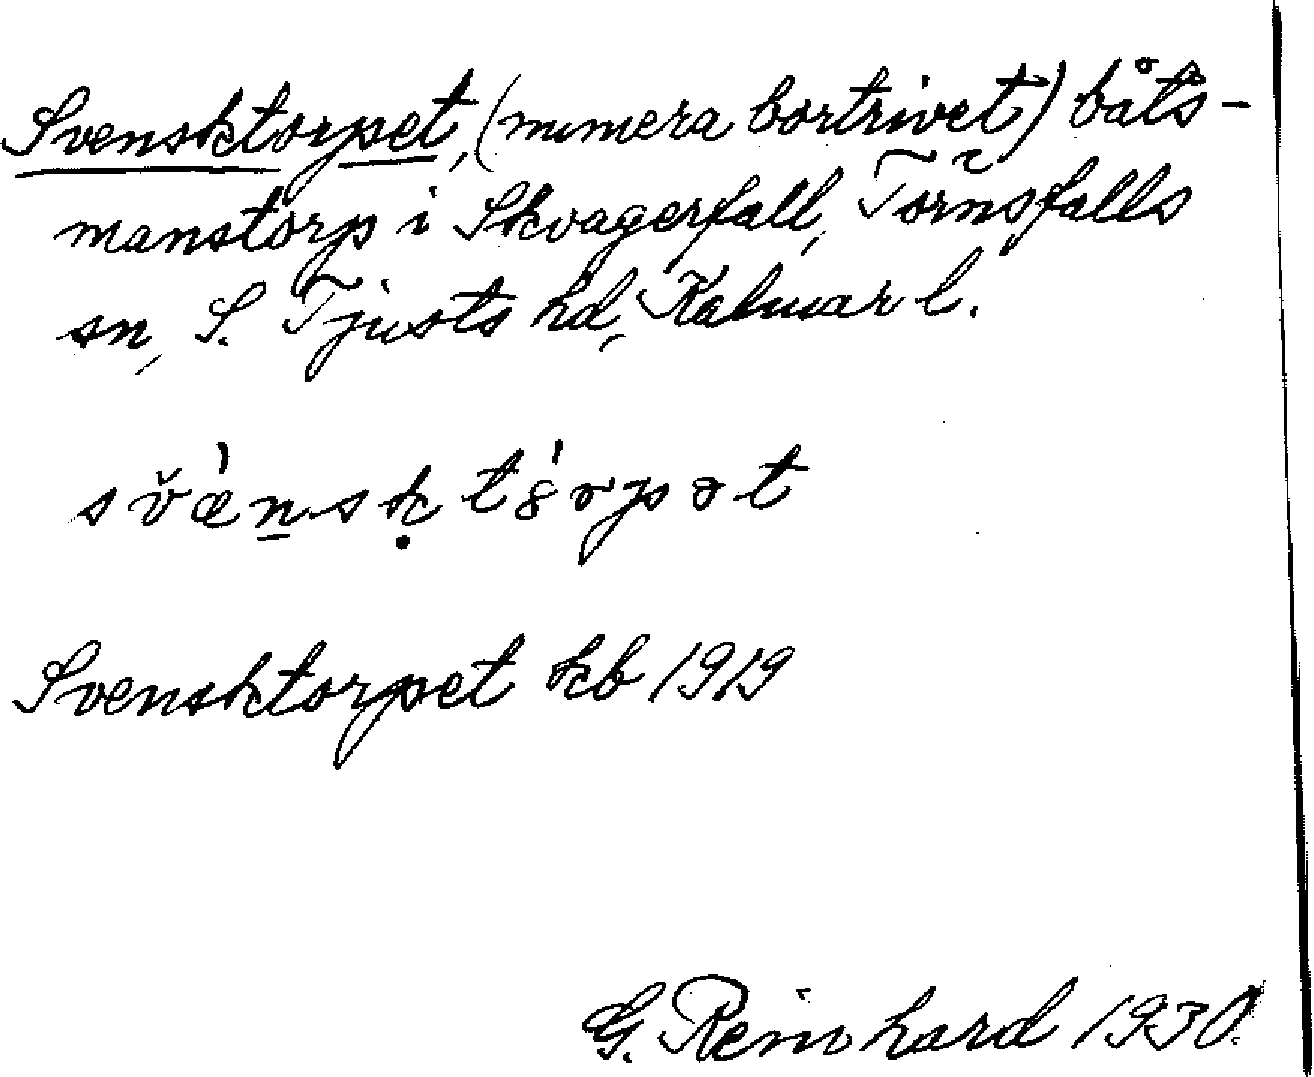 Svensktorpet, (numera bortrivet) båts-
manstorp i Skvagerfall, Törnsfalls
sn, S. Tjusts hd, Kalmar l.
sv̌æ̀nsk̩tórpət
Svensktorpet kb 1919
G. Reinhard 1930.